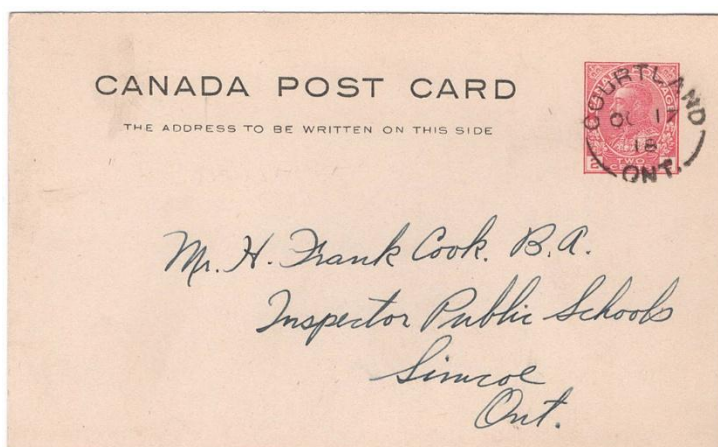 CANADA POST CARD
THE ADDRESS TO BE WRITTEN ON THIS SIDE
COURTLAND
OC 17
18
ONT.
TWO
Mr. H. Frank Cook. B.A.
Inspector Public Schools
Simcoe
Ont.